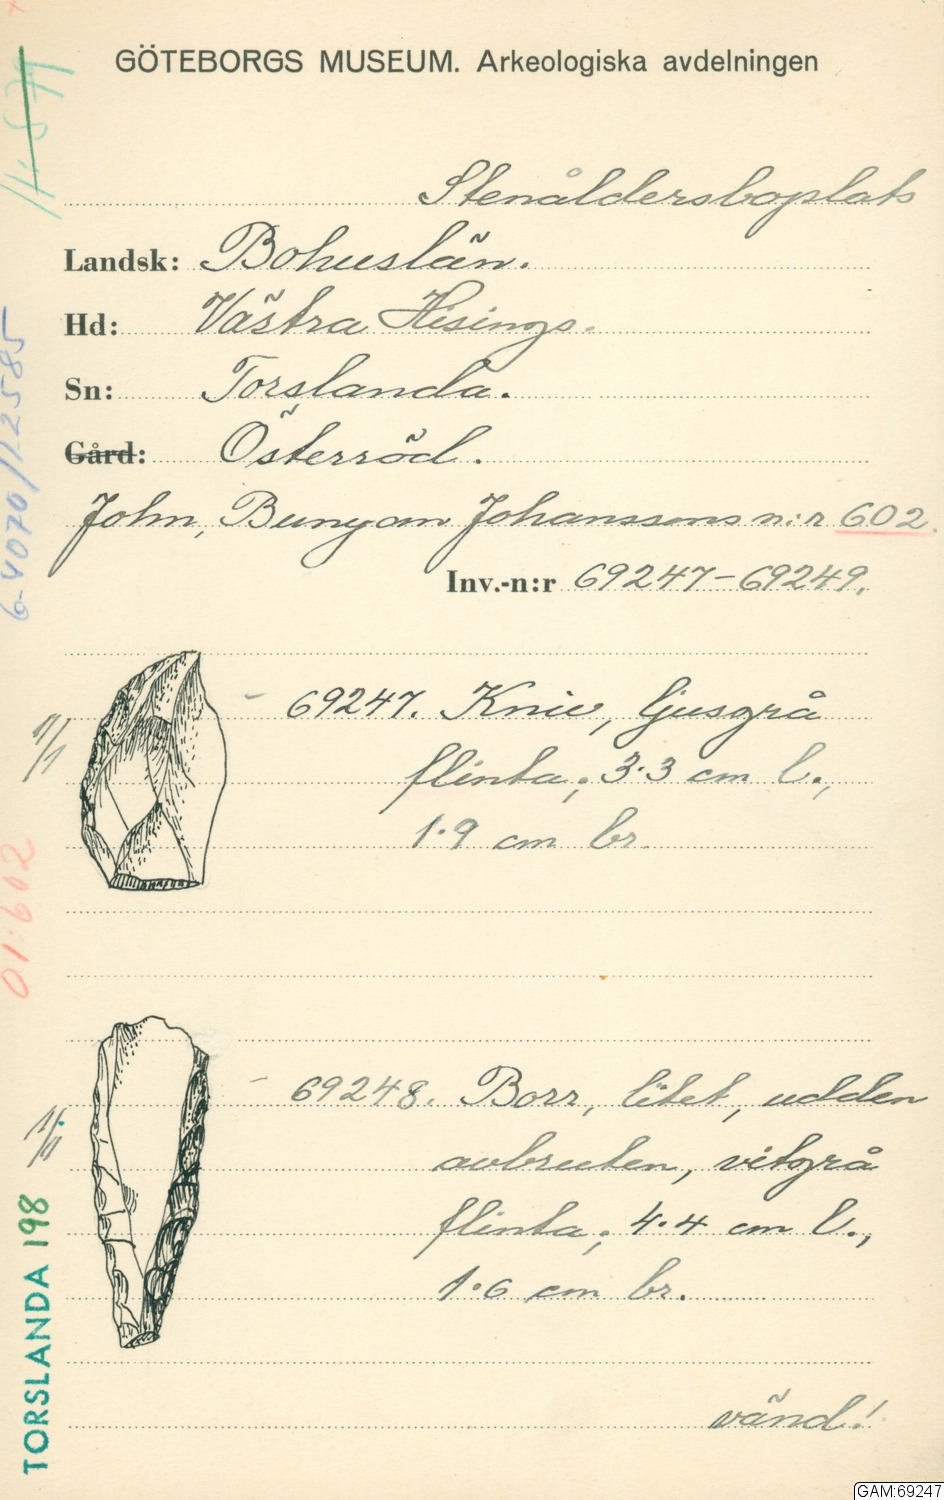 GÖTEBORGS MUSEUM. Arkeologiska avdelningen
Stenåldersboplats
Landsk: Bohuslän.
Hd: Västra Hisings.
Sn: Torslanda.
Gård: Österröd.
John, Bunyan Johanssons n:r 602.
Inv.-n:r 69247-69249.
1/1
69247. Kniv, ljusgrå
flinta; 3.3 cm l.,
1.9 cm br.
1/1
69248. Borr, litet, udden
avbruten, vitgrå
flinta; 4.4 cm l.,
1.6 cm br.
vänd!
6-4070/12585
01:602
TORSLANDA 198
GAM:69247